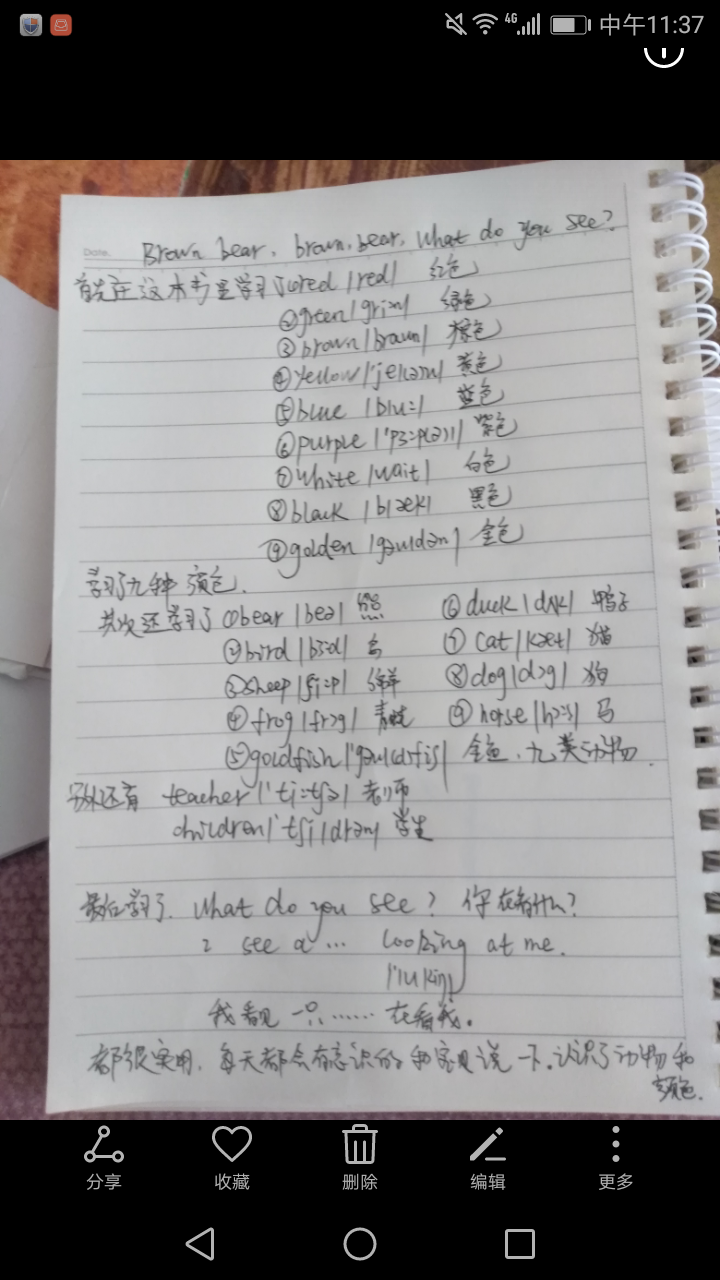 4G 中午11:37
Date.
Brown bear, brown, bear, what do you see?
首先在这本书里学习了①red |red| 红色
②green |gri:n| 绿色
③brown |braun| 棕色
④yellow |'jeləʊ| 黄色
⑤blue |blu:| 蓝色
⑥purple |'pɜ:p(ə)l| 紫色
⑦white |wait| 白色
⑧black |blæk| 黑色
⑨golden |gəuldən| 金色
学习了九种颜色.
其次还学习了①bear |beə| 熊 ⑥duck |dʌk| 鸭子
②bird |bɜ:d| 鸟 ⑦cat |kæt| 猫
③sheep |ʃi:p| 绵羊 ⑧dog |dɔg| 狗
④frog |frɔg| 青蛙 ⑨horse |hɔ:s| 马
⑤goldfish |'gəuldfiʃ| 金鱼. 九类动物.
另外还有 teacher |'ti:tʃə| 老师
children |'tʃildrən| 学生
最后学习了. what do you see? 你在看什么?
I see a ... looking at me.
|'lukiŋ|
我看见 一只...... 在看我.
都很实用. 每天都会有意识的和宝贝说一下. 认识了动物和
颜色.
分享 收藏 删除 编辑 更多